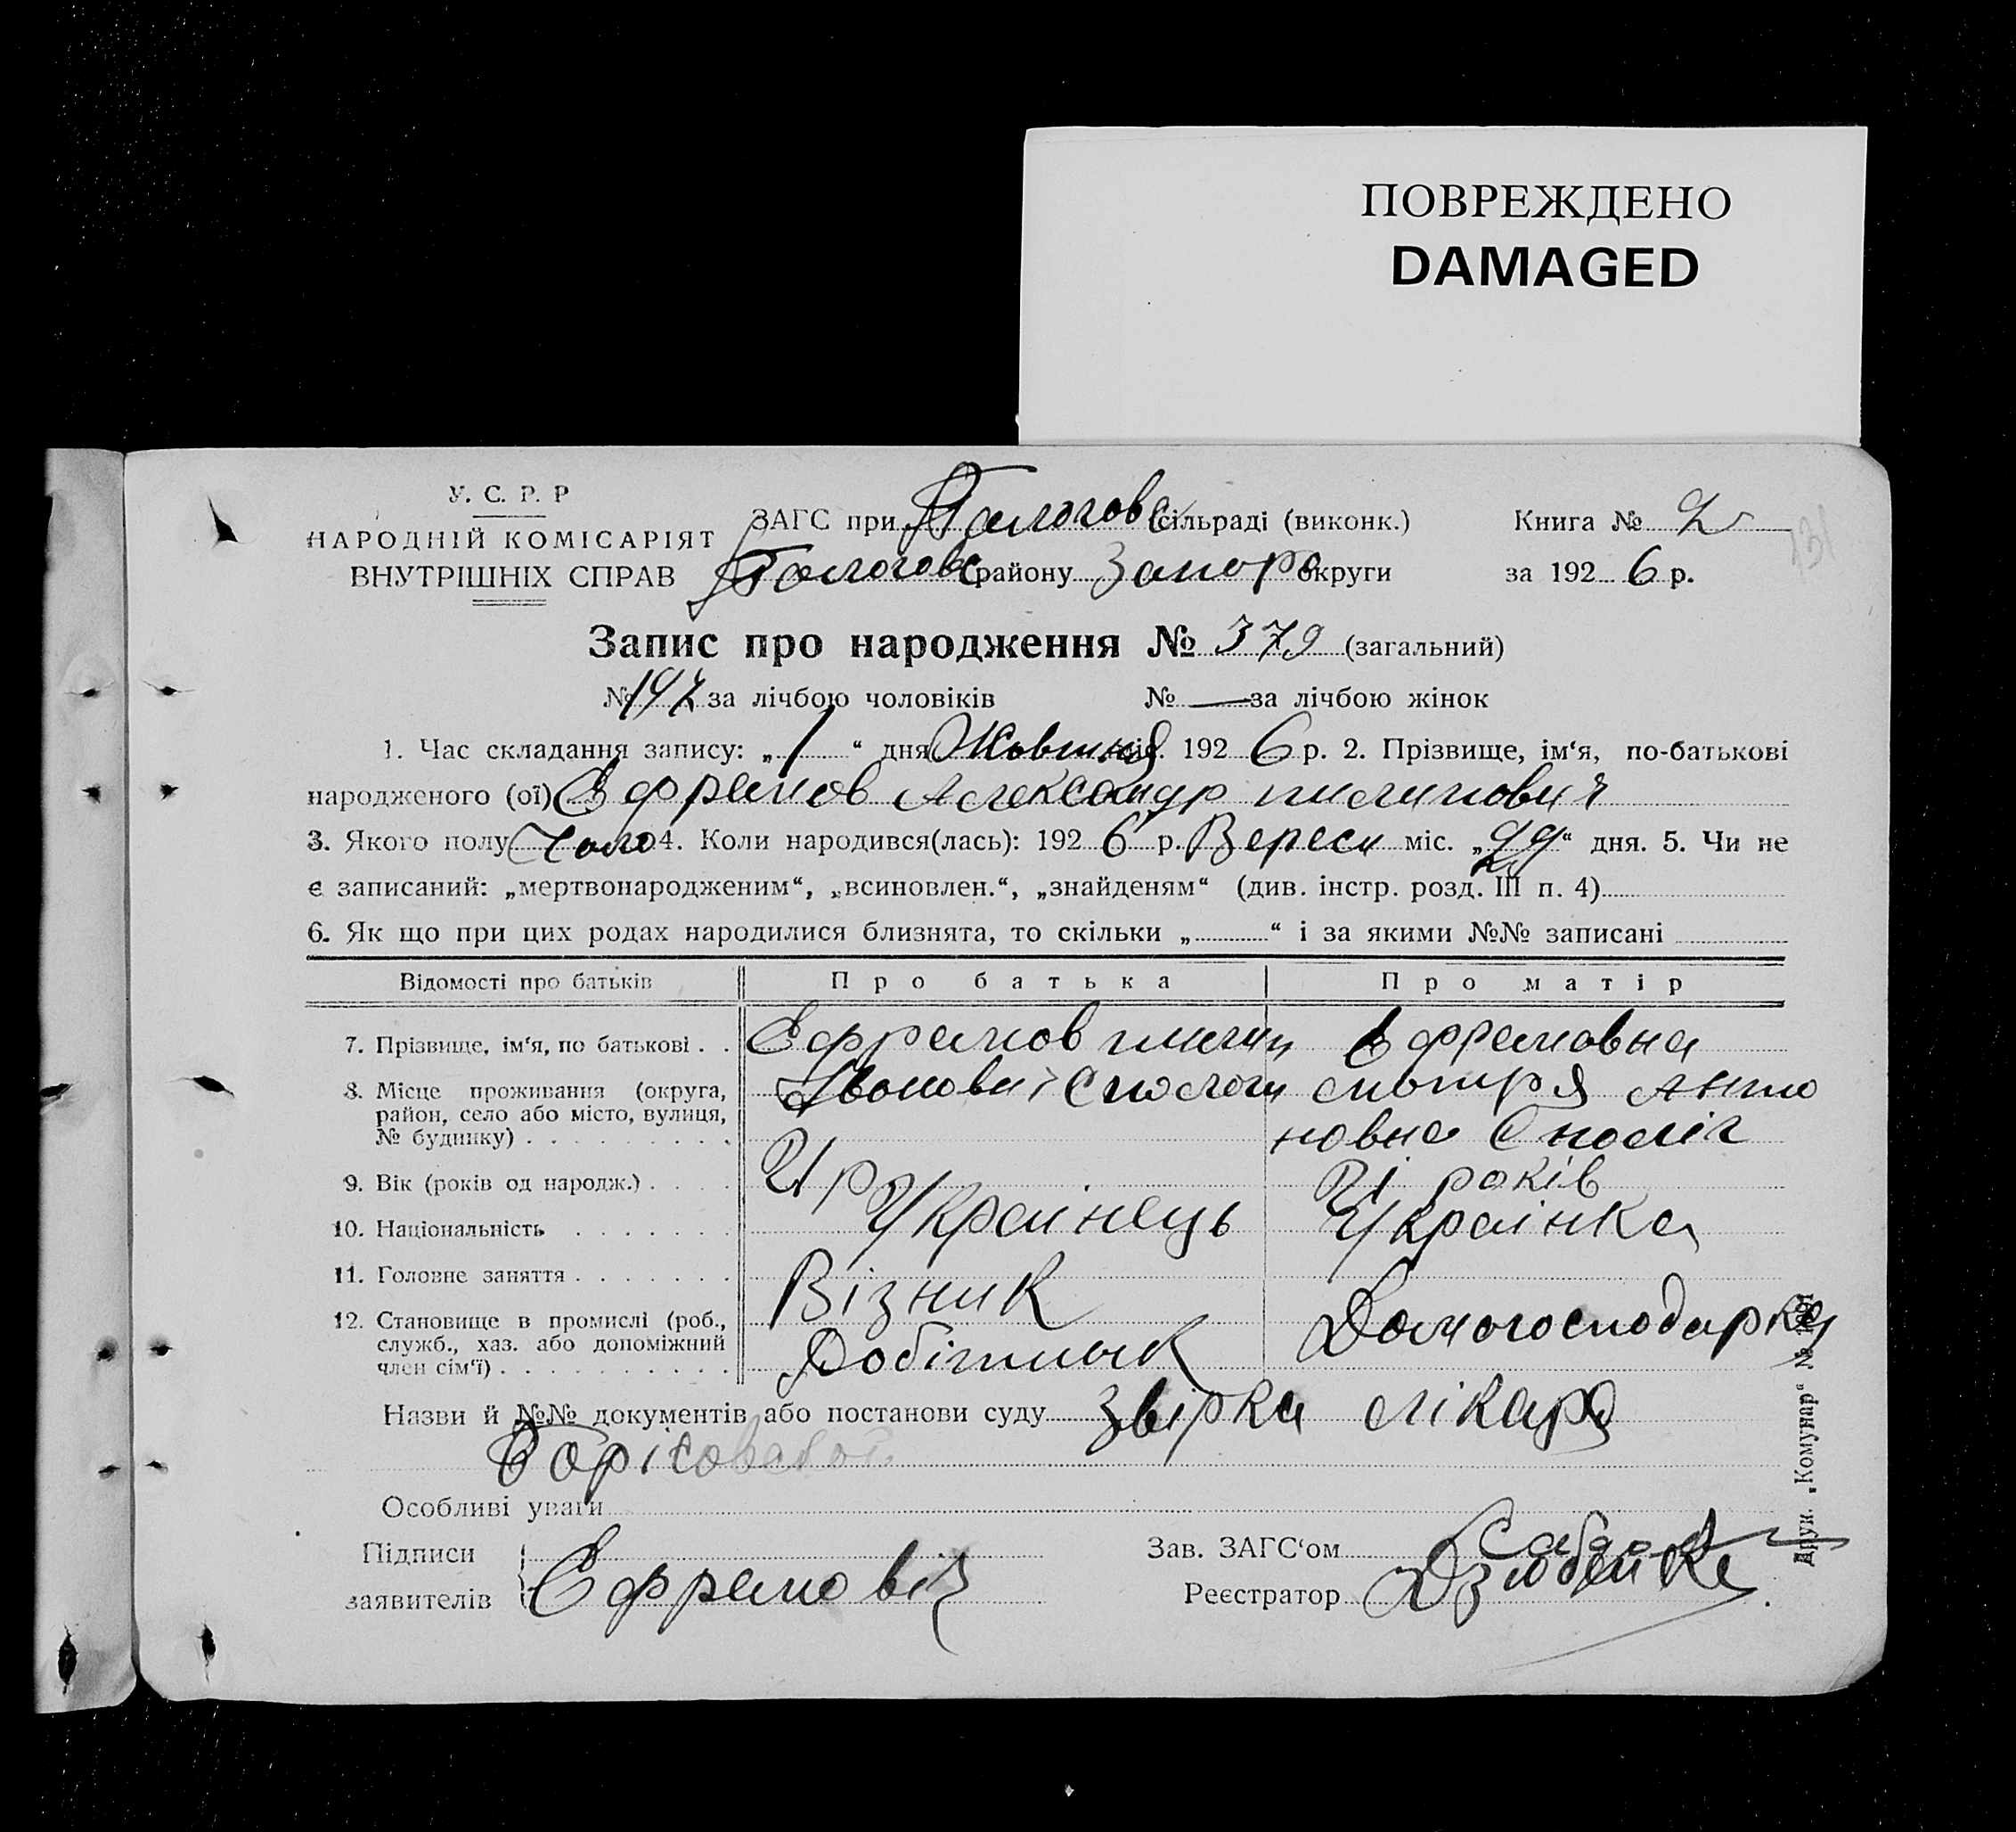 ПОВРЕЖДЕНО
DAMAGED
У. С. Р. Р
НАРОДНІЙ КОМІСАРІЯТ
ВНУТРІШНІХ СПРАВ
ЗАГС при Пологовс сільраді (виконк.)
Пологовс району Запор округи
Книга № 2
за 1926 р.
131
Запис про народження № 379 (загальний)
№ 197 за лічбою чоловіків № — за лічбою жінок
1. Час складання запису: „1“ дня Жовтня міс. 1926 р. 2. Прізвище, ім‘я, по-батькові
народженого (ої) Ефремов Александр пилипович
3. Якого полу Чоло 4. Коли народився(лась): 1926 р. Вересн міс. „29“ дня. 5. Чи не
є записаний: „мертвонародженим“, „всиновлен.“, „знайденям“ (див. інстр. розд. III п. 4)
6. Як що при цих родах народилися близнята, то скільки „ “ і за якими №№ записані
Відомості про батьків Про батька Про матір
7. Прізвище, ім‘я, по батькові . . Ефремов пилип Ефремовна
8. Місце проживання (округа, район, село або місто, вулиця, № будинку) Івонович с пологи мотря Анто
новна с пологи
9. Вік (років од народж.) . . . . 21 р 21 років
10. Національність Українець Українка
11. Головне заняття Візник
12. Становище в промислі (роб., служб., хаз. або допоміжний член сім‘ї) Робітник Домогосподарка
Назви й №№ документів або постанови суду звірка лікаря
Борісовской
Особливі уваги
Підписи
заявителів Ефремо
Зав. ЗАГС‘ом
Реєстратор Дзюбенко
Друк. „Комунар“ №